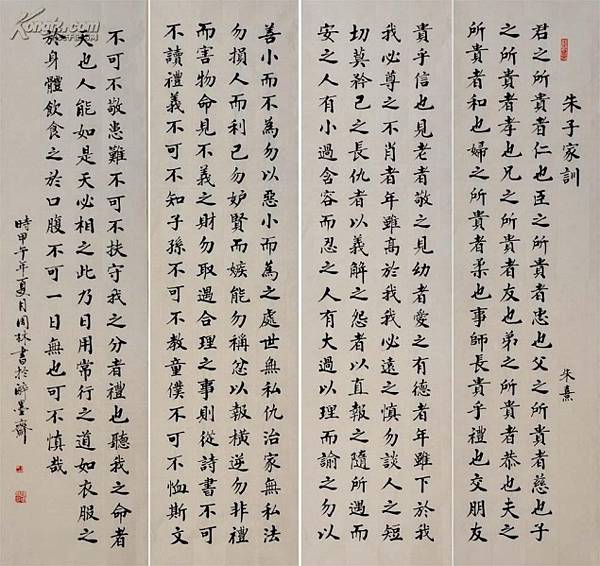 朱子家訓 朱熹
君之所貴者仁也臣之所貴者忠也父之所貴者慈也子
之所貴者孝也兄之所貴者友也弟之所貴者恭也夫之
所貴者和也婦之所貴者柔也事師長貴乎禮也交朋友
貴乎信也見老者敬之見幼者愛之有德者年雖下於我
我必尊之不肖者年雖高於我我必遠之慎勿談人之短
切莫矜己之長仇者以義解之怨者以直報之隨所遇而
安之人有小過含容而忍之人有大過以理而諭之勿以
善小而不為勿以惡小而為之處世無私仇治家無私法
勿損人而利己勿妒賢而嫉能勿稱忿以報橫逆勿非禮
而害物命見不義之財勿取遇合理之事則從詩書不可
不讀禮義不可不知子孫不可不教童僕不可不恤斯文
不可不敬患難不可不扶守我之分者禮也聽我之命者
天也人能如是天必相之此乃日用常行之道如衣服之
於身體飲食之於口腹不可一日無也可不慎哉
時甲午年夏月周林書於醉墨齋